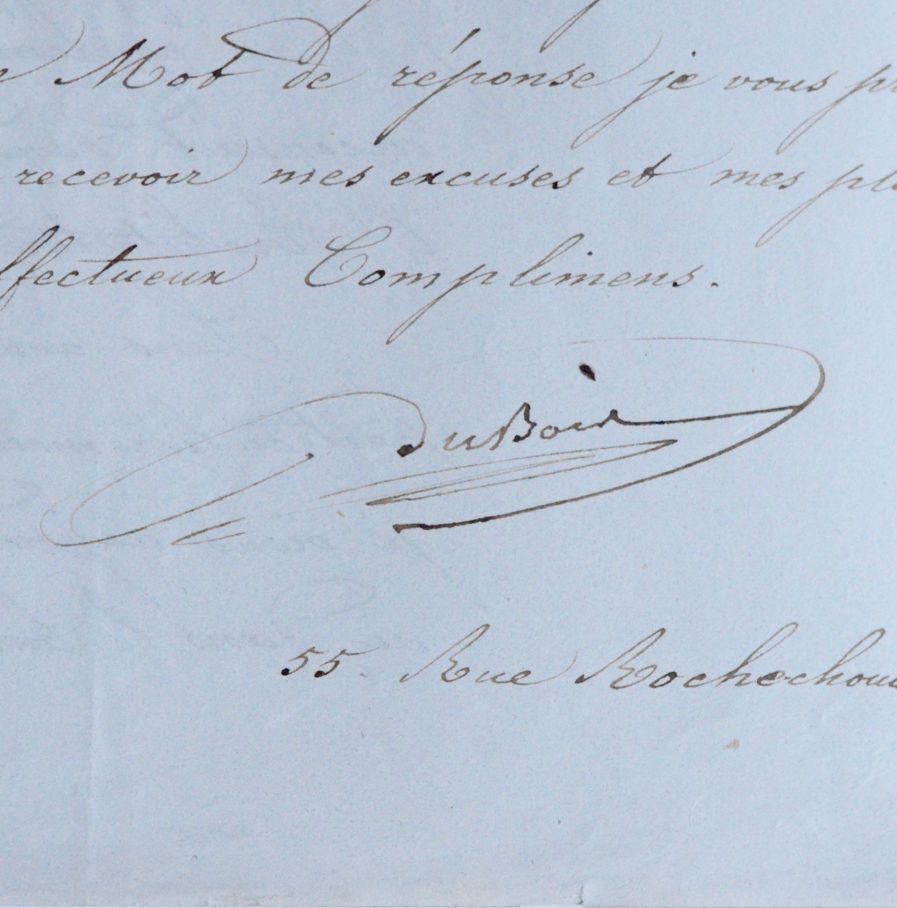 Mot de réponse je vous
recevoir mes excuses et mes
ffectueux Complimens.
DuBois
55. Rue Rochechoua